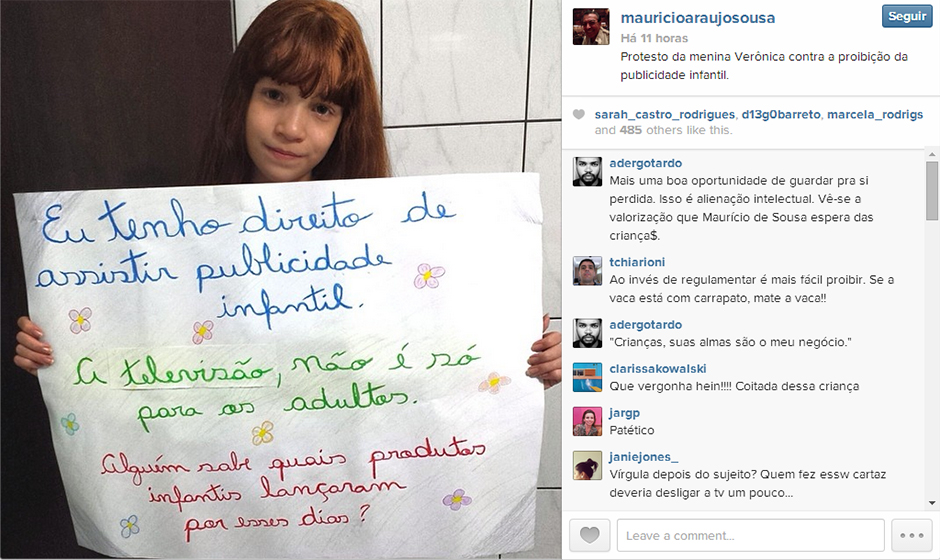 Eu tenho direito de
assistir publicidade
infantil.
A televisão, não é só
para os adultos.
Alguém sabe quais produtos
infantis lançaram
por esses dias?
mauricioaraujosousa
Seguir
Há 11 horas
Protesto da menina Verônica contra a proibição da
publicidade infantil.
sarah_castro_rodrigues, d13g0barreto, marcela_rodrigs
and 485 others like this.
adergotardo
Mais uma boa oportunidade de guardar pra si
perdida. Isso é alienação intelectual. Vê-se a
valorização que Maurício de Sousa espera das
criança$.
tchiarioni
Ao invés de regulamentar é mais fácil proibir. Se a
vaca está com carrapato, mate a vaca!!
adergotardo
"Crianças, suas almas são o meu negócio."
clarissakowalski
Que vergonha hein!!!! Coitada dessa criança
jargp
Patético
janiejones_
Vírgula depois do sujeito? Quem fez essw cartaz
deveria desligar a tv um pouco...
Leave a comment...